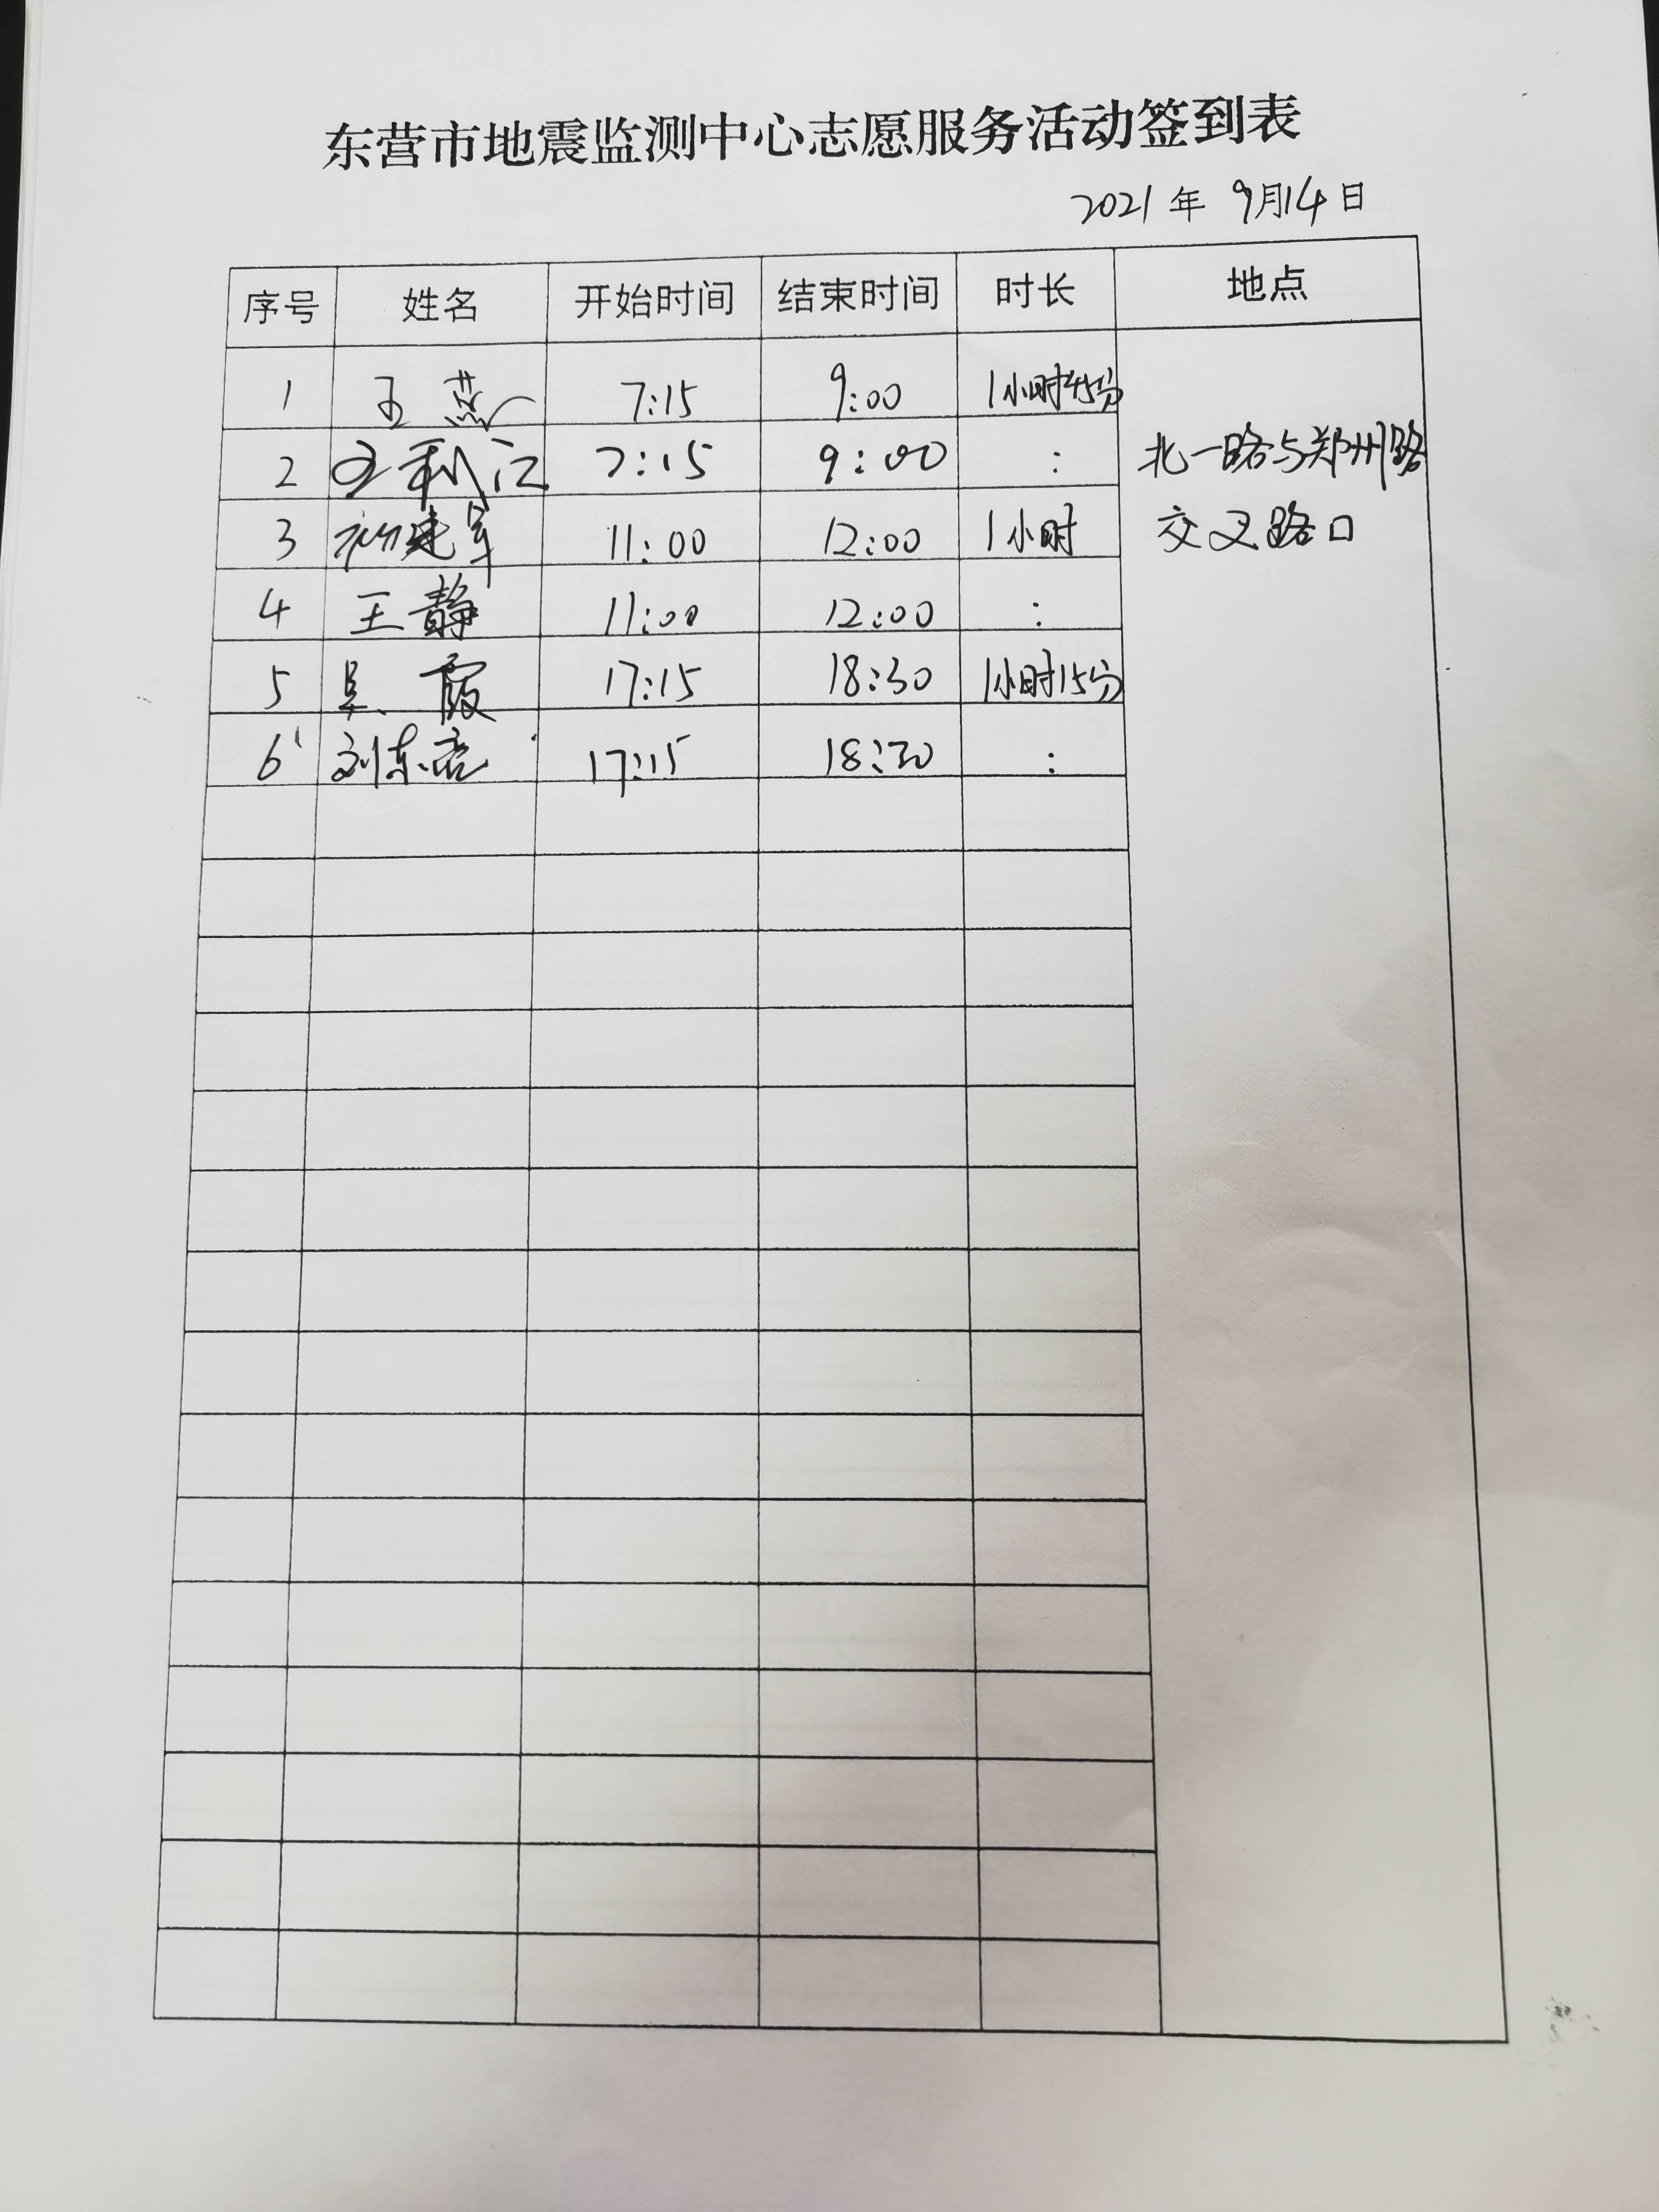 东营市地震监测中心志愿服务活动签到表
2021年 9月14日
序号 姓名 开始时间 结束时间 时长 地点
1 王燕 7:15 9:00 1小时45分
2 王利江 7:15 9:00 :
北一路与郑州路
3 建军 11:00 12:00 1小时
交叉路口
4 王静 11:00 12:00 :
5 吴霞 17:15 18:30 1小时15分
6 刘东亮 17:15 18:30 :